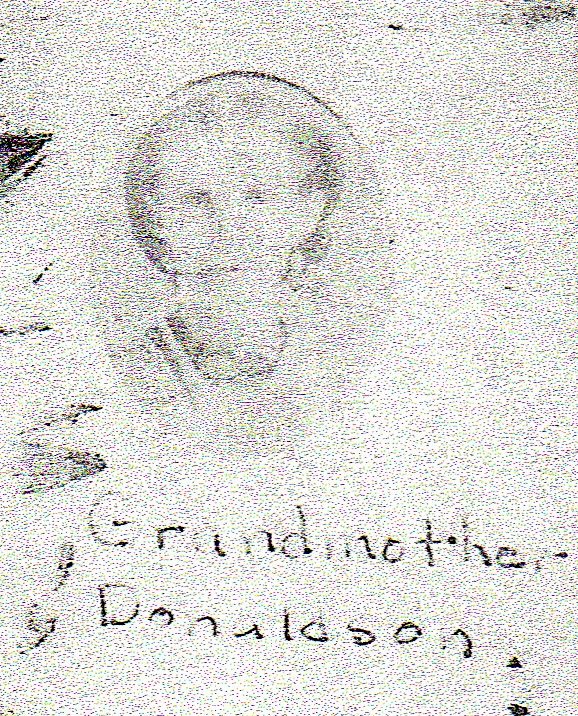 Grandmother
Donaldson.